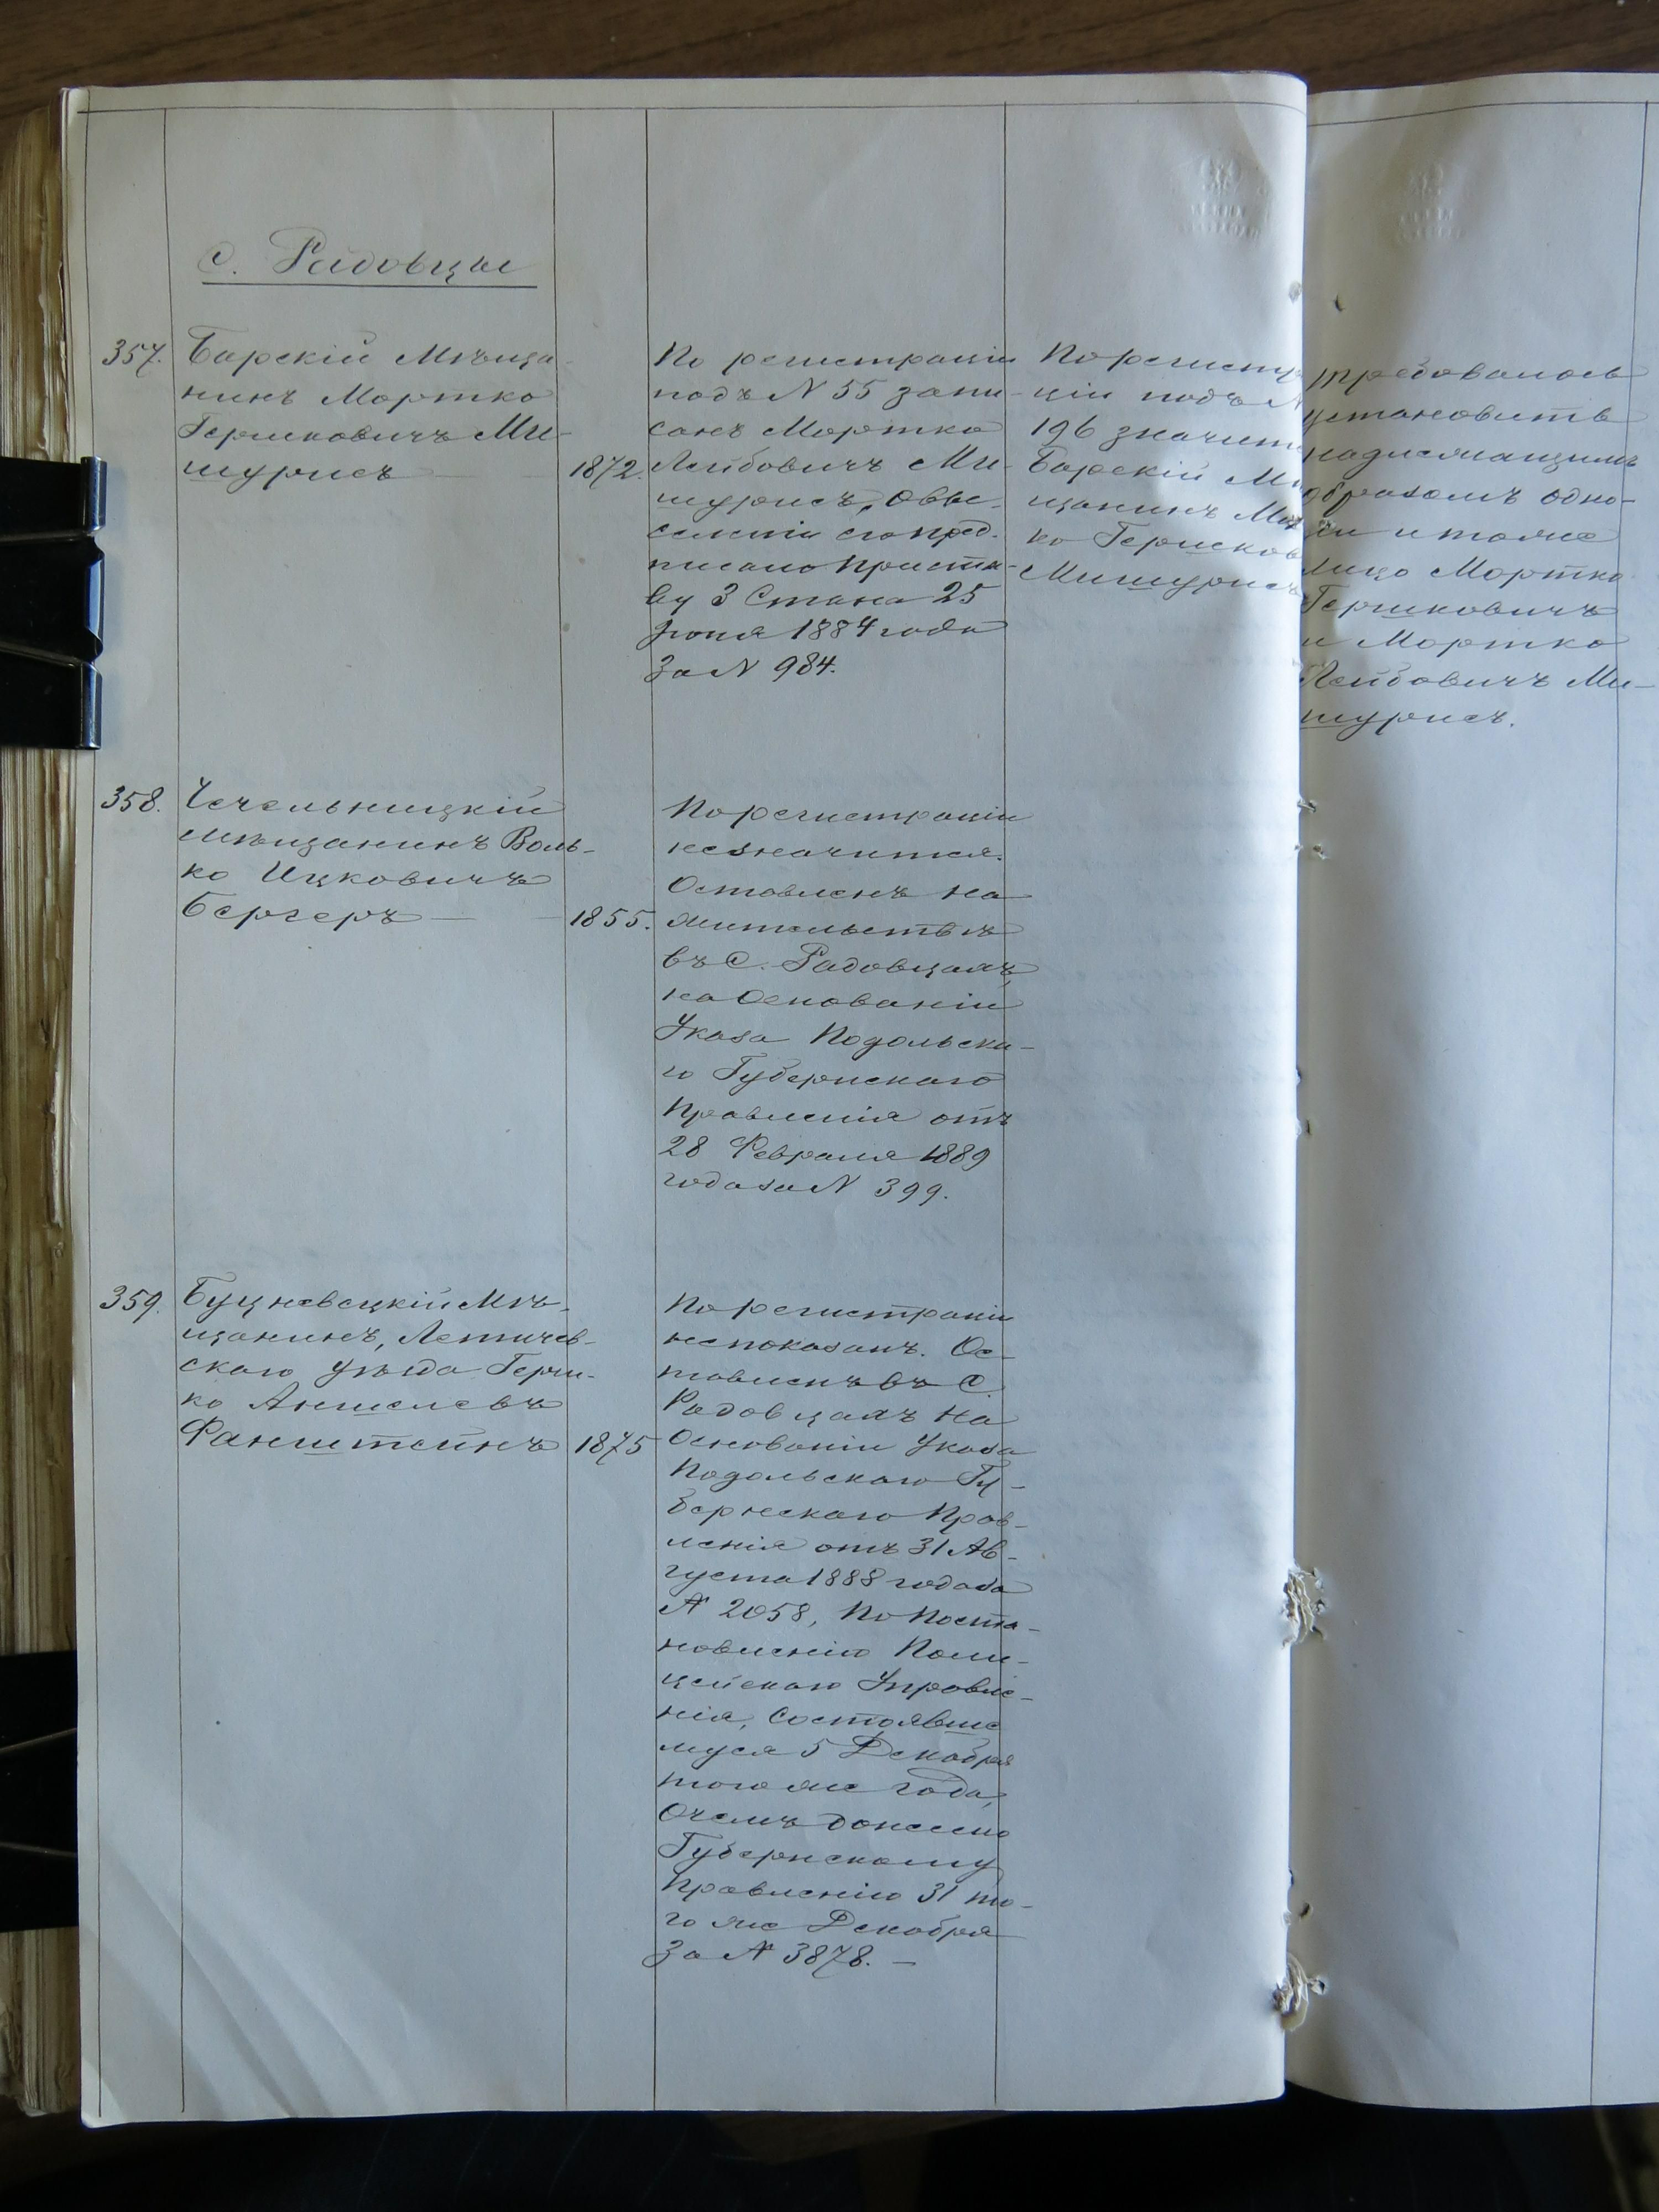 с. Радовцы
357.
Барскій Мѣща-
нинъ Мортко
Гершковичъ Ми-
шурисъ
1872.
По регистраціи
подъ N 55 запи-
санъ Мортко
Лейбовичъ Ми-
шурисъ, о вы-
селеніи его пред-
писано Приста-
ву 3 Стана 25
Іюня 1884 года
За N 984.
По регистр
ціи подъ N
196 значит
Барскій М
щанинъ Мо
ко Гершков
Мишурис
требовалось
установить
надлежащимъ
образомъ одно-
ли и тоже
лицо Мортко
Гершковичъ
и Мортко
Лейбовичъ Ми-
шурисъ.
358.
Чечельницкій
мѣщанинъ Воль-
ко Ицковичъ
Бергеръ
1855.
По регистраціи
не значится.
Оставленъ на
жительствѣ
въ С. Радовцахъ,
на Основаніи
Указа Подольска-
го Губернскаго
Правленія отъ
28 Февраля 1889
года за N 399.
359.
Буцневецкій Мѣ-
щанинъ, Летичев-
скаго уѣзда Герш-
ко Аншелевъ
Фанштейнъ
1875
По регистраціи
не показанъ. Ос-
тавленъ въ С.
Радовцахъ на
Основаніи Указа
Подольскаго Гу-
бернскаго Прав-
ленія отъ 31 Ав-
густа 1888 года за
N 2058, По Поста-
новленію Поли-
цейскаго Управле-
нія, Состоявше
муся 5 Декабря
того же года,
О чемъ донесено
Губернскому
Правленію 31 то-
го же Декабря
За N 3878. —